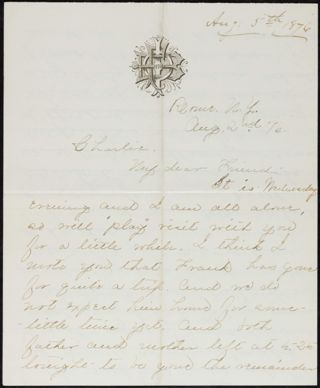 Aug. 5th 1876
Rome N.Y.
Aug 2nd 76
Charlie.
My dear Friend
It is Wednesday
evening and I am all alone,
so will "play" visit with you
for a little while. I think I
wrote you that Frank has gone
for quite a trip and we do
not expect him home for some-
little time yet, and both
father and mother left at
tonight to be gone the remainder